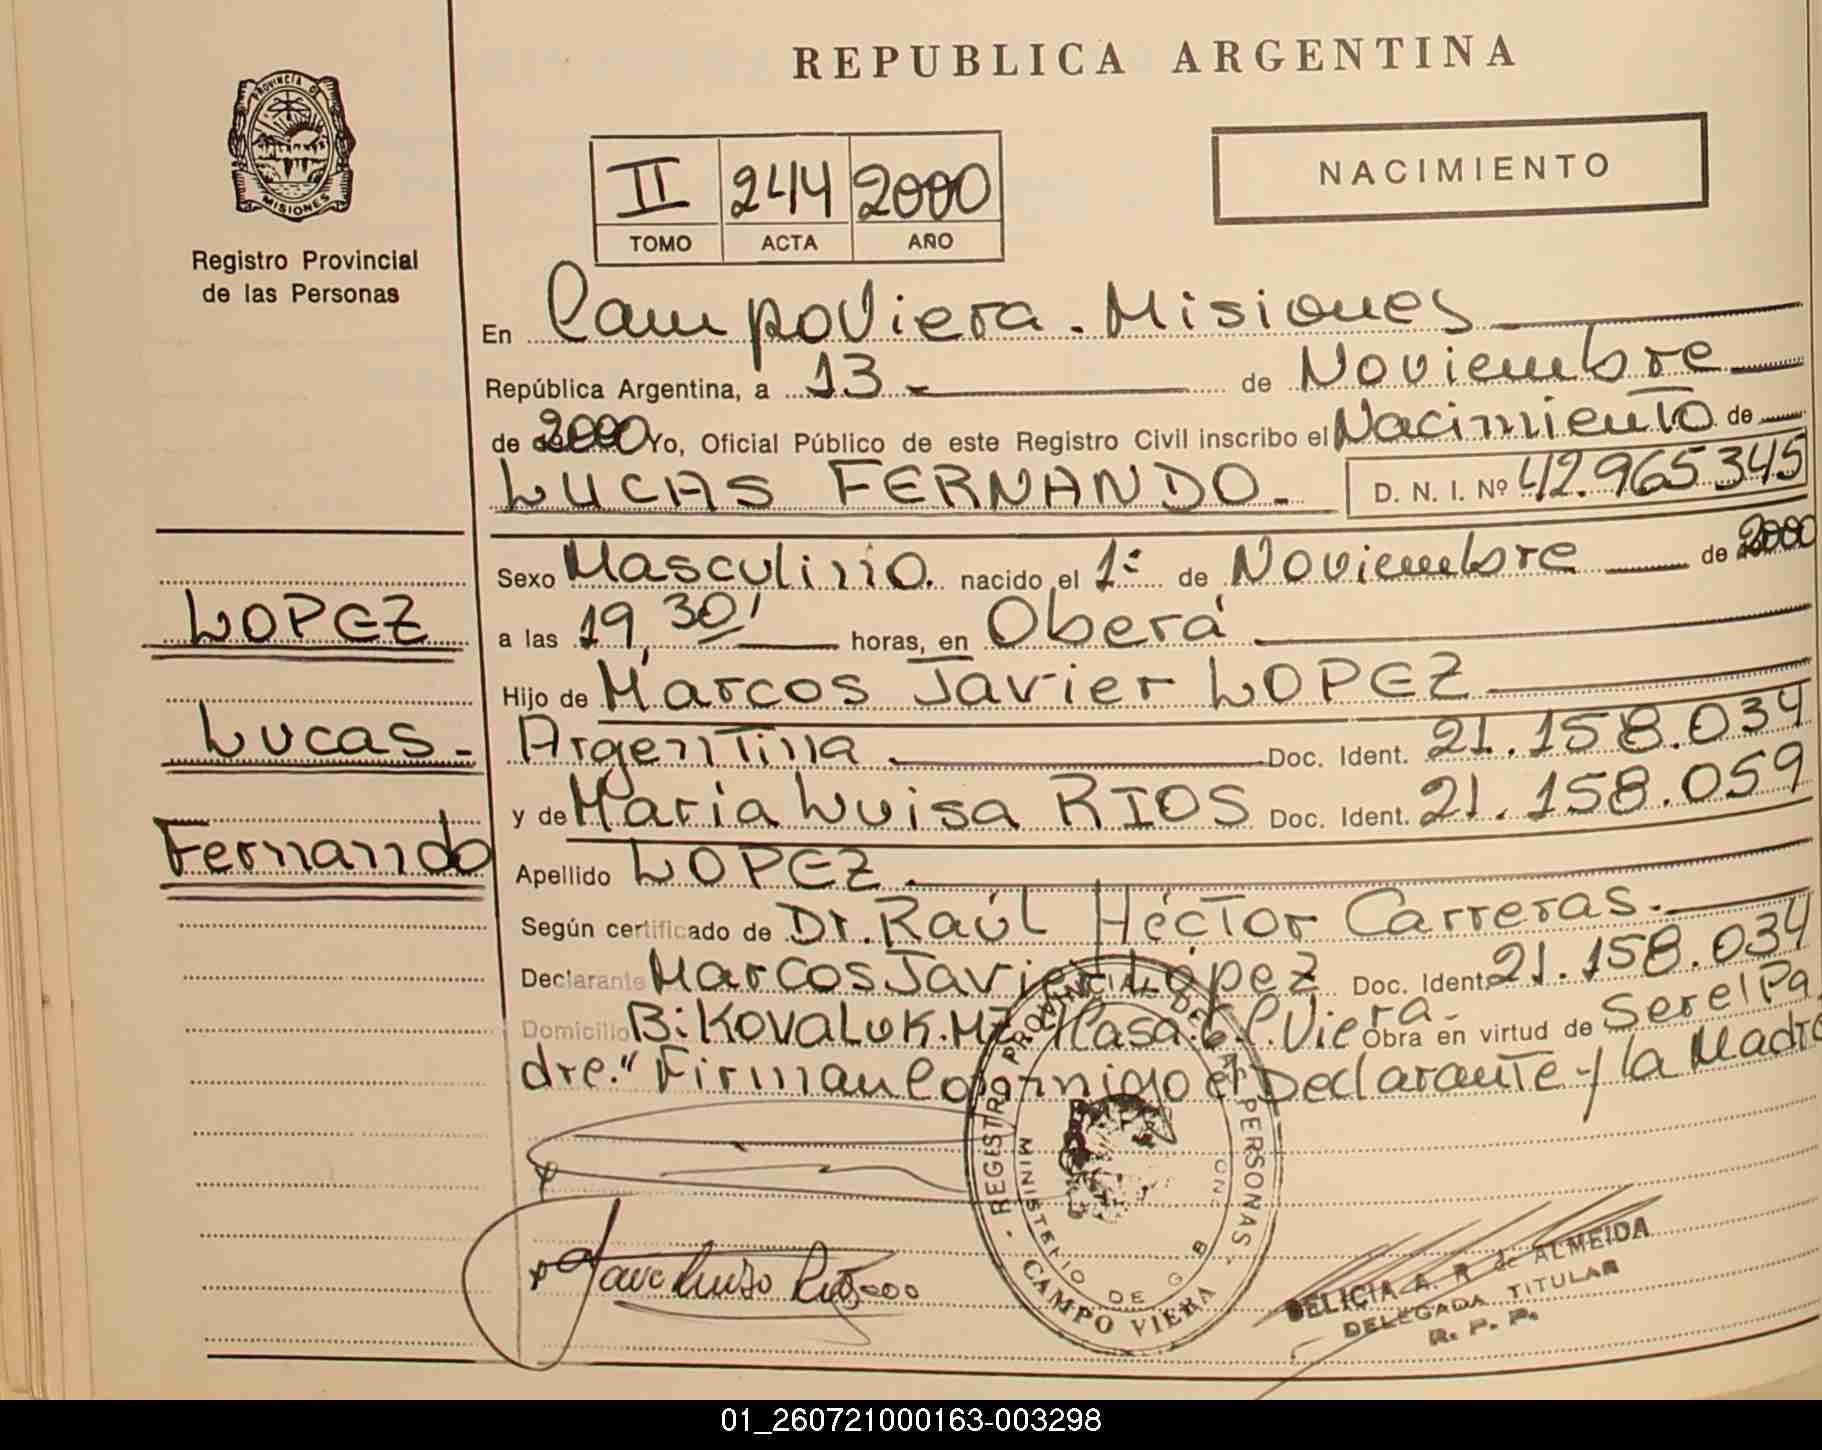 REPUBLICA ARGENTINA
PROVINCIA DE
MISIONES
Registro Provincial
de las Personas
II 244 2000
TOMO ACTA AÑO
NACIMIENTO
En Campo Viera - Misiones
República Argentina, a 13 - de Noviembre
de 2000 Yo, Oficial Público de este Registro Civil inscribo el Nacimiento de
LUCAS FERNANDO - D. N. I. Nº 42.965.345
Sexo Masculino. nacido el 1º de Noviembre de 2000
a las 19,30' horas, en Oberá
Hijo de Marcos Javier LOPEZ
Argentina Doc. Ident. 21.158.034
y de Maria Luisa RIOS Doc. Ident. 21.158.059
Apellido LOPEZ.
Según certificado de Dr. Raúl Héctor Carreras.-
Declarante Marcos Javier López Doc. Ident. 21.158.034
Domicilio B: KOVALUK. MZ Casa: 6 C. Viera - Obra en virtud de Ser el Pa
dre." Firman Conmigo el Declarante y la Madre
LOPEZ
Lucas -
Fernando
REGISTRO PROVINCIAL DE LAS PERSONAS
MINISTERIO DE
- CAMPO VIERA
DELICIA A. R. de ALMEIDA
DELEGADA TITULAR
R. P. P.
01_260721000163-003298